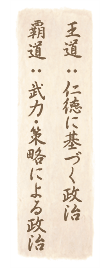 王道：仁徳に基づく政治
覇道：武力・策略による政治